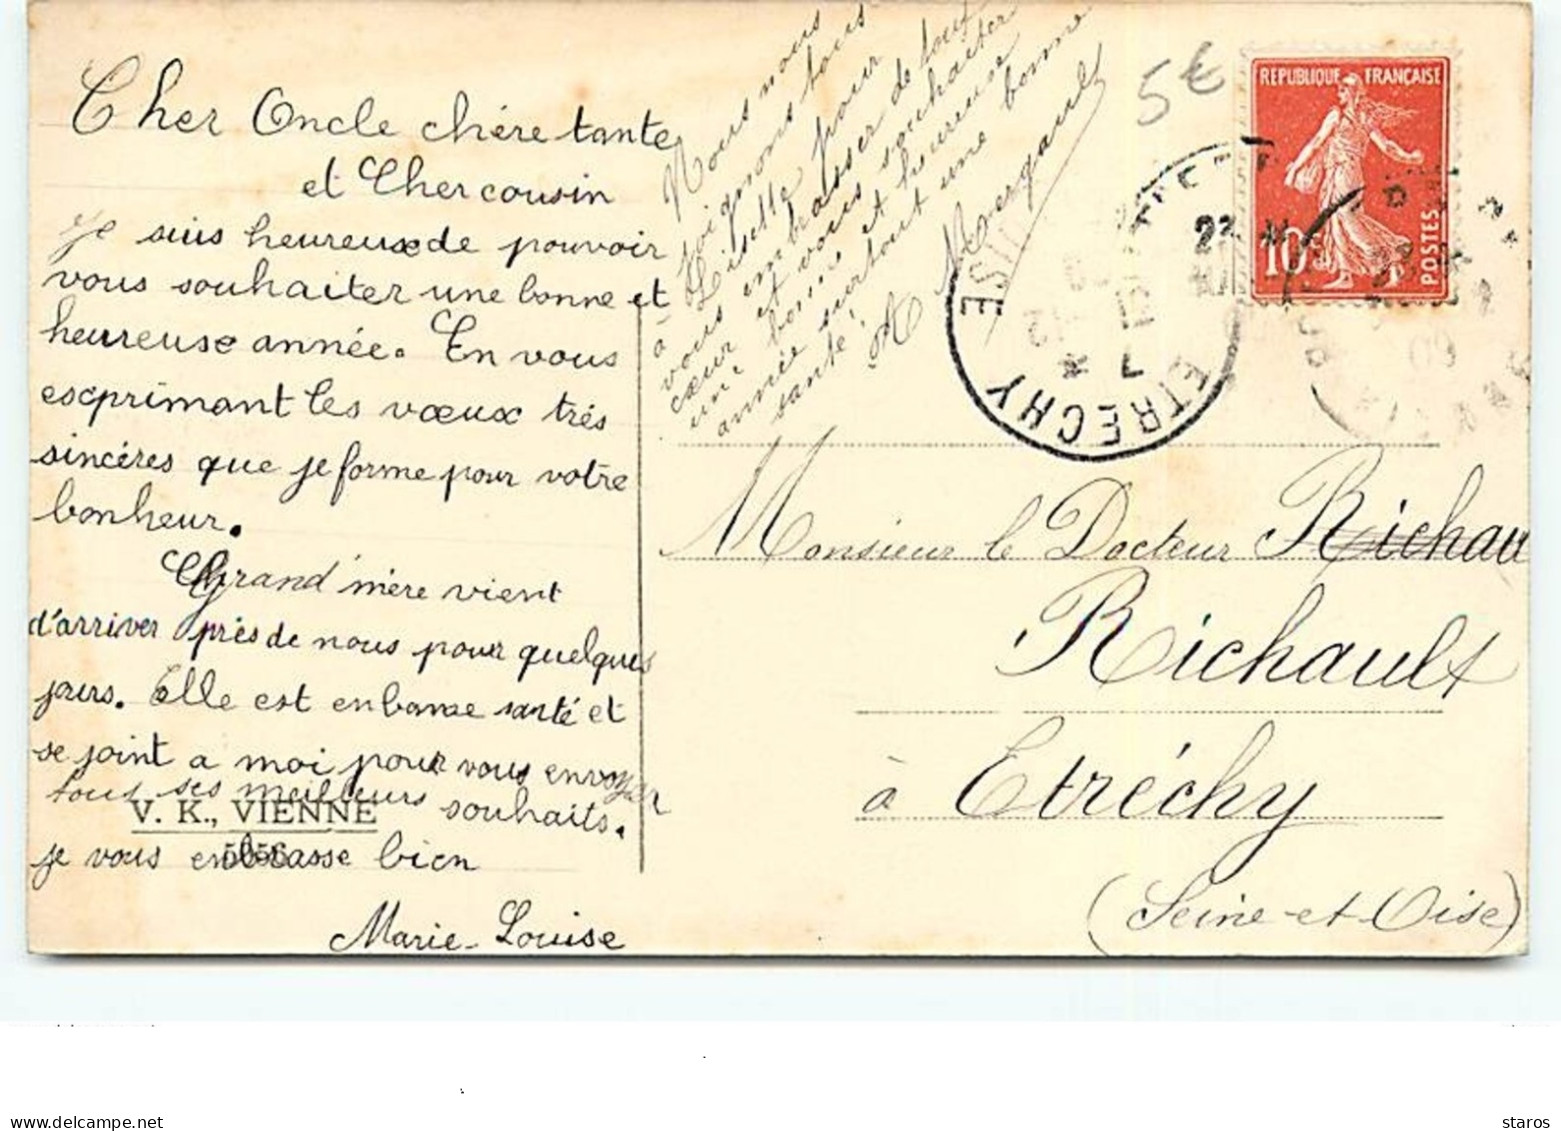 Cher Oncle chère tante
et Cher cousin
Je suis heureuse de pouvoir
vous souhaiter une bonne et
heureuse année. En vous
exprimant les vœux très
sincères que je forme pour votre
bonheur.
Grand'mère vient
d'arriver près de nous pour quelques
jours. Elle est en bonne santé et
se joint a moi pour vous envoyer
tous ses meilleurs souhaits.
je vous embrasse bien
Marie-Louise
V. K., VIENNE
5056
Nous nous
joignons tous
à Lisette pour
vous embrasser de tout
cœur et vous souhaiter
une bonne et heureuse
année surtout une bonne
santé!
A Mergault
5€
REPUBLIQUE FRANÇAISE
10c
POSTES
ETRECHY
Monsieur le Docteur Richau
Richault
à Etréchy
(Seine-et-Oise)
staros
www.delcampe.net